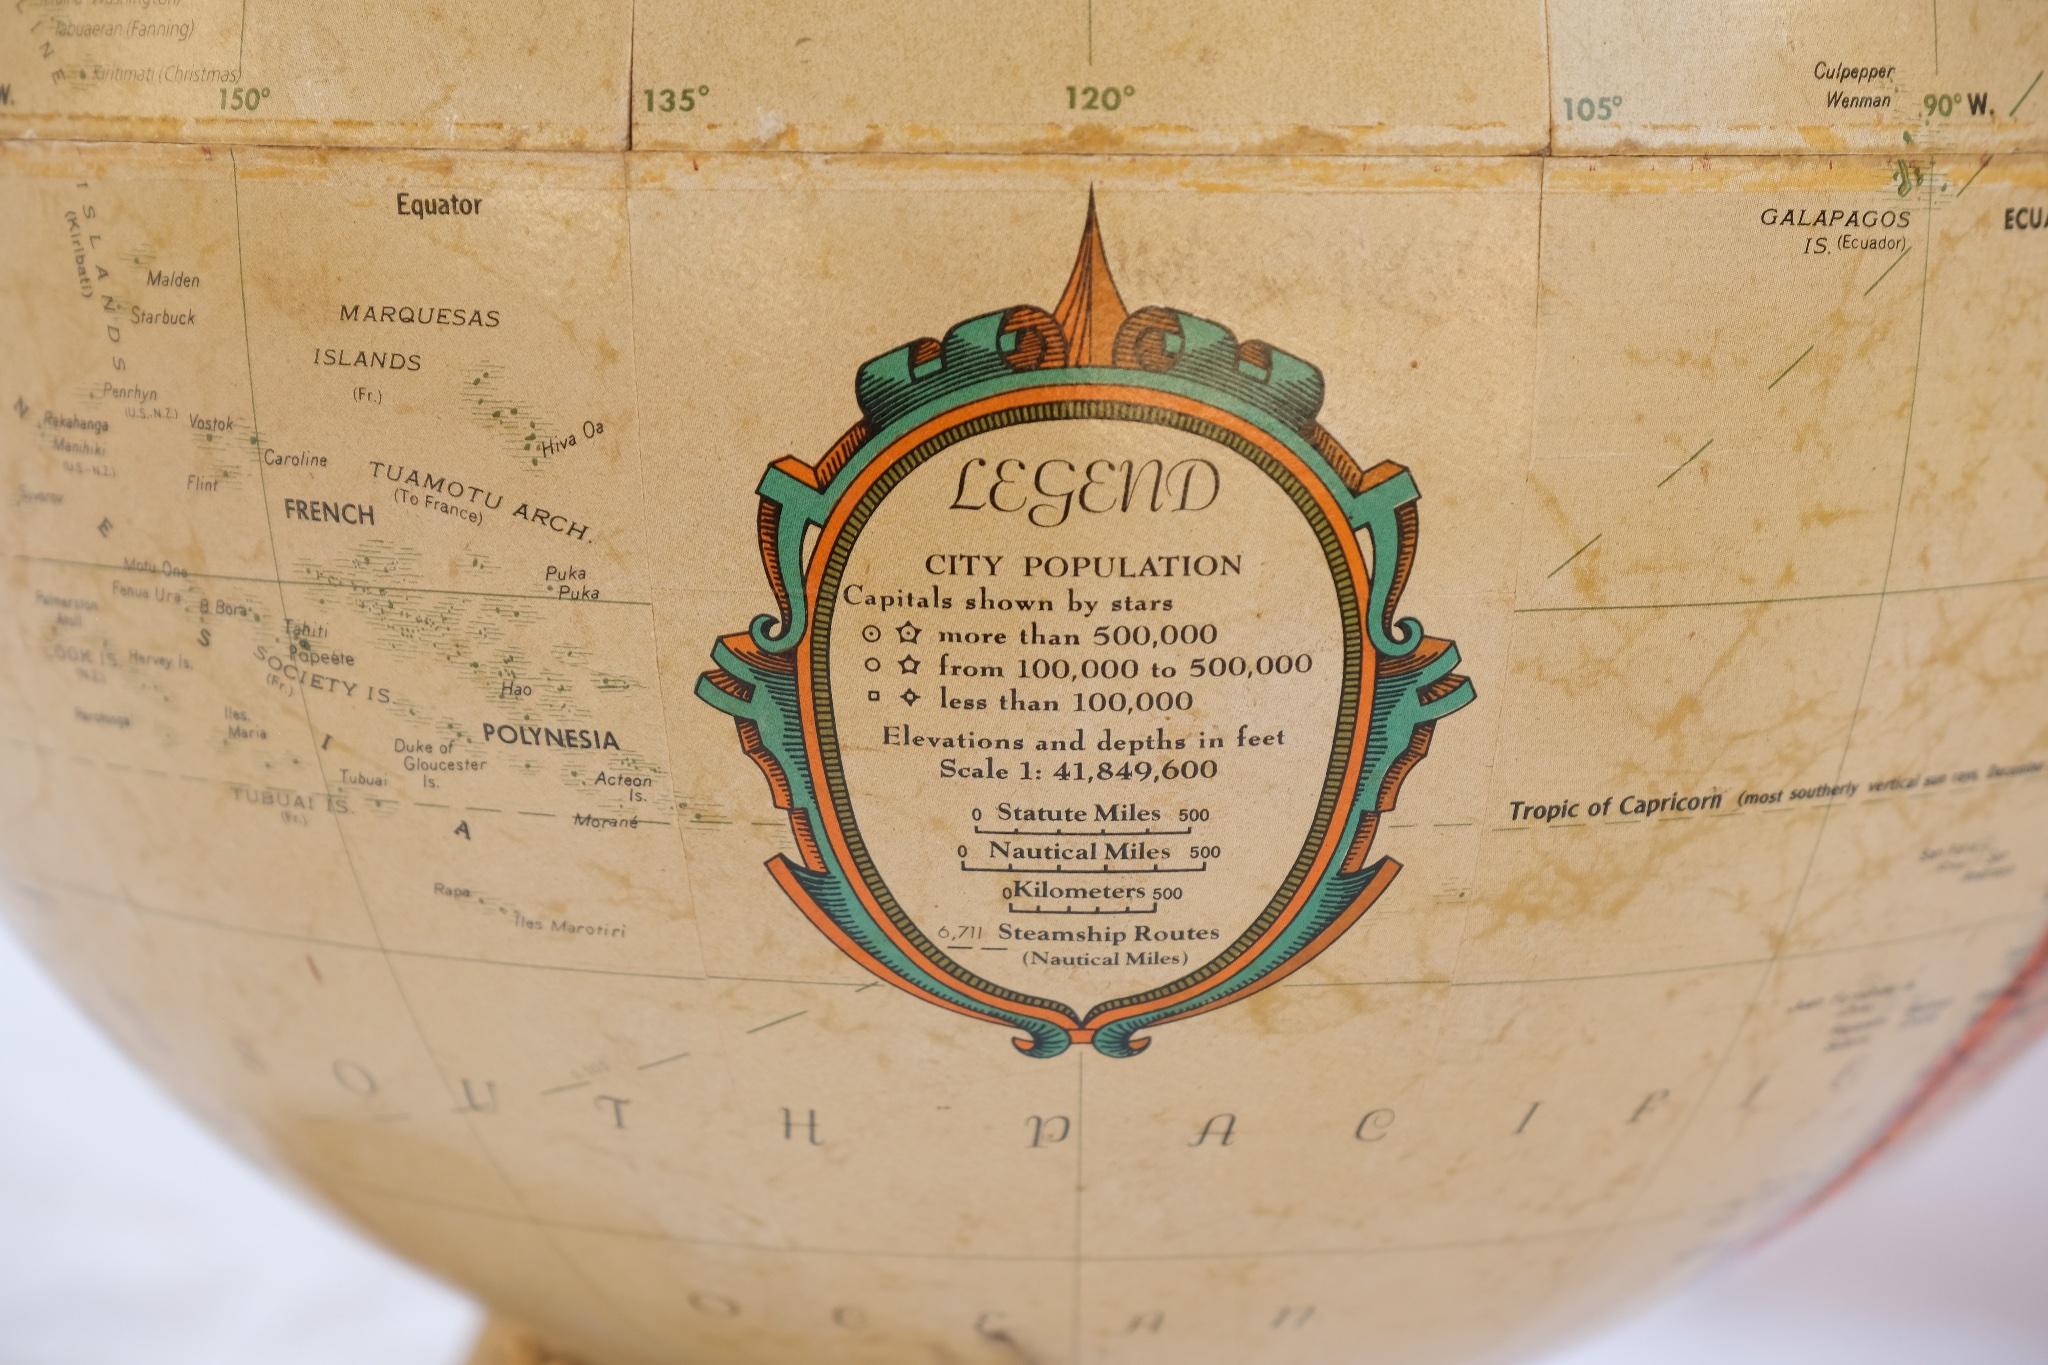 Tabuaeran (Fanning)
Kiritimati (Christmas)
W.
150°
135°
120°
105°
Culpepper
Wenman
90° W.
Equator
GALAPAGOS
IS. (Ecuador)
ECUA
LINE ISLANDS
(Kiribati)
Malden
Starbuck
MARQUESAS
ISLANDS
(Fr.)
Hiva Oa
Penrhyn
(U.S.-N.Z.)
Rakahanga
Manihiki
(U.S.-N.Z.)
Vostok
Caroline
Flint
TUAMOTU ARCH.
(To France)
FRENCH
Puka
Puka
Motu One
Fenua Ura
B. Bora
Tahiti
Papeete
SOCIETY IS.
(Fr.)
COOK IS.
(N.Z.)
Hervey Is.
Hao
POLYNESIA
Iles
Maria
Duke of
Gloucester
Is.
Acteon
Is.
Tubuai
TUBUAI IS.
(Fr.)
Morané
Rapa
Iles Marotiri
LEGEND
CITY POPULATION
Capitals shown by stars
more than 500,000
from 100,000 to 500,000
less than 100,000
Elevations and depths in feet
Scale 1: 41,849,600
0 Statute Miles 500
0 Nautical Miles 500
0 Kilometers 500
6,711 Steamship Routes
(Nautical Miles)
Tropic of Capricorn (most southerly vertical sun rays, December
SOUTH PACIFIC
OCEAN